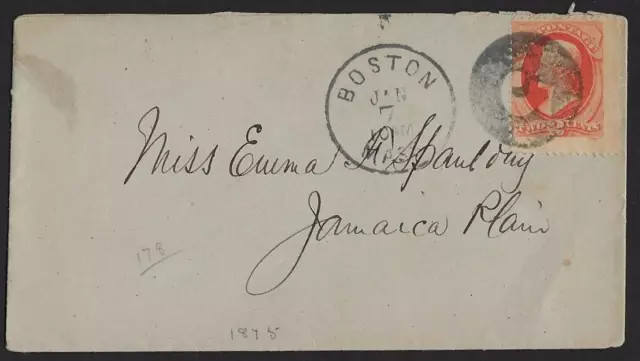 BOSTON
JAN
7
MASS
POSTAGE
TWO CENTS
Miss Emma H. Spaulding
Jamaica Plain
178
1875